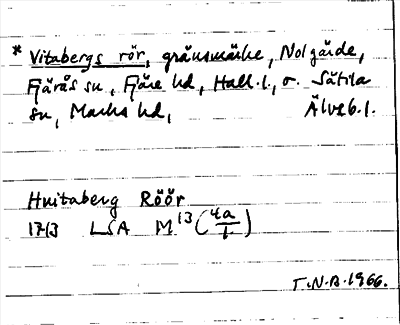 * Vitabergs rör, gränsmärke, Nolgärde,
Fjärås sn, Fjäre hd, Hall. l., o. Sätila
sn, Marks hd, Älvsb. l.
Huitaberg Röör
1713 LSA M 13 (4a/1)
T.N.B. 1966.